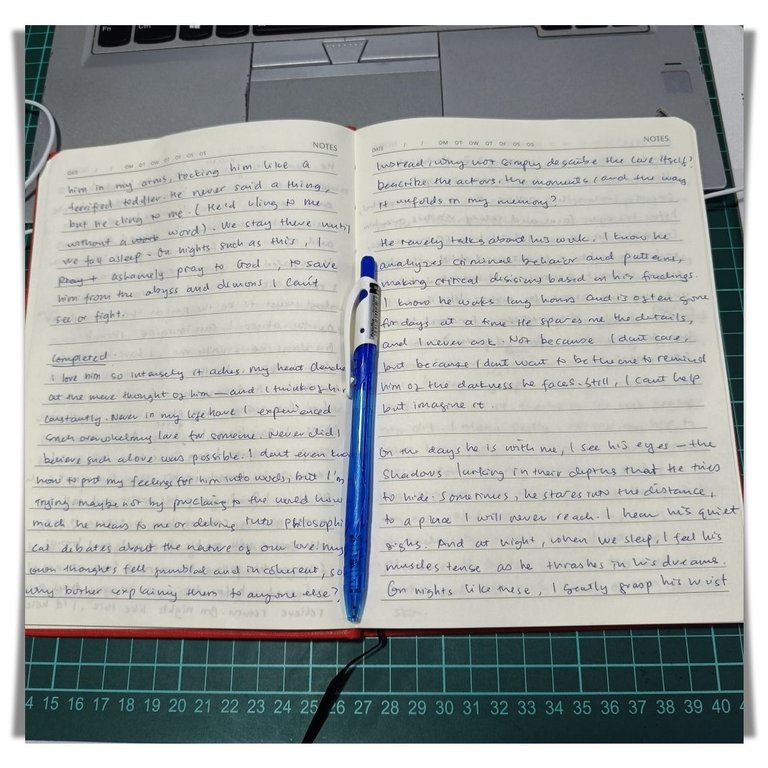 Fn
Ctrl
Alt
NOTES
DATE / / OM OT OW OT OF OS OS
him in my arms, rocking him like a
terrified toddler. He never said a thing,
but he cling to me. (He'd cling to me
without a word). We stay there until
we fall asleep. On nights such as this, I
ashamely pray to God, to save
him from the abyss and demons I can't
see or fight.
Completed.
I love him so intensely it aches. My heart
at the mere thought of him — and I think of him
constantly. Never in my life have I experienced
such overwhelming love for someone. Never did I
believe such a love was possible. I don't even know
how to put my feelings for him into words, but I'm
trying maybe not by proclaing to the world how
much he means to me or delving into philosophi
cal debates about the nature of our love. My
own thoughts fell jumbled and incoherent, so
why bother explaining them to anyone else?
NOTES
DATE / / OM OT OW OT OF OS OS
Instead, why not simply describe the love itself?
Describe the actors, the moments, and the way
it unfolds in my memory?
He rarely talks about his work. I know he
analyzes criminal behavior and patterns,
making critical disisions based on his findings.
I know he works long hours and is often gone
for days at a time. He spares me the details,
and I never ask. Not because I don't care,
but because I don't want to be the one to remind
him of the darkness he faces. Still, I can't help
but imagine it
On the days he is with me, I see his eyes — the
shadows lurking in their depths that he tries
to hide. Sometimes, he stares into the distance,
to a place I will never reach. I hear his quiet
sighs. And at night, when we sleep, I feel his
muscles tense as he thrashes in his dreams.
On nights like these, I gently grasp his wrist
14 15 16 17 18 19 20 21 22 23 24 25 26 27 28 29 30 31 32 33 34 35 36 37 38 39 40